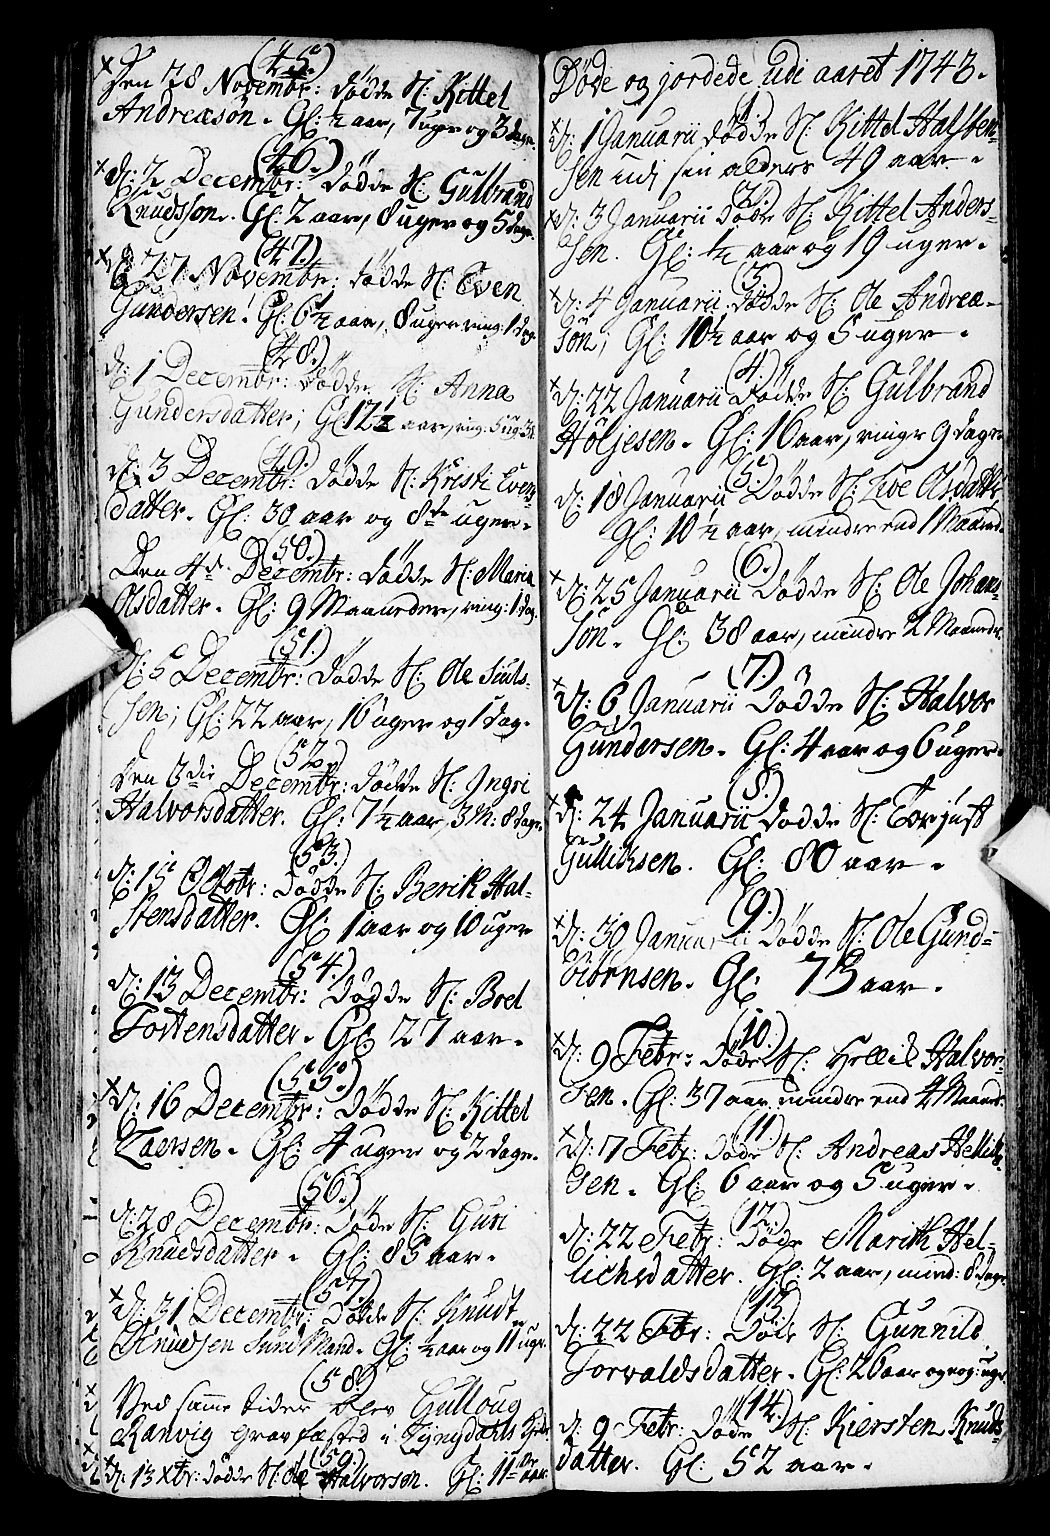 (45.)
Den 28 Novembr: dödde N: Kittel
Andreæsön. Gl: ½ aar, 7 uger og 3 dage.
(46.)
D: 2 Decembr: dödde N: Gulbrand
Knudsson. Gl: 2 aar, 8 uger og 5 dage.
(47.)
D: 27 Novembr: dödde N: Even
Gundersen! Gl: 6½ aar, 8 uger ring: 1 dag.
(48.)
D: 1 Decembr: dödde N: Anna
Gundersdatter; Gl 12½ aar, ring: 5 ug: 3d.
(49.)
D: 3 Decembr: dödde N: Kristi Evens
datter. Gl: 30 aar og 8te uger.
(50.)
Den 4de Decembr: dödde N: Maria
Olsdatter. Gl: 9 Maaneder, ring: 1 dag.
(51.)
D: 5 Decembr: dödde N: Ole
sen; Gl: 22 aar, 16 uger og 1 dag.
(52.)
Den 6die Decembr: dödde N: Ingri
Halvorsdatter. Gl: 7½ aar, 3 M: 8 dage.
(53.)
D: 15 Octobr: dödde N: Berit Hal-
stensdatter. Gl: 1 aar og 10 uger
(54.)
D: 13 Decembr: dödde N: Boel
Torstensdatter. Gl: 27 aar.
(55.)
D: 16 Decembr: dödde N: Kittel
Larsen. Gl: 4 uger og 2 dage.
(56.)
D: 28 Decembr: döde N: Guri
Knudsdatter. Gl: 85 aar.
(57.)
D: 31 Decembr: dödde N: Knudt
Knudsen Gl: ½ aar og 11 uger.
(58)
Ved samme tider blev Gulloug
Ranvig grav fæsted i
(59.)
D: 13 Xbr: dödde N: Ole Halvorsen. Gl: 11 aar.
Döde og jordede udi aaret 1743.
(1.)
D: 1 Januarii dödde N: Kittel Halsten-
sen udi sin alders 49 aar.
(2.)
D: 3 Januarii döde N: Kittel Anders-
sen. Gl: ½ aar og 19 uger.
(3.)
D: 4 Januarii dödde N: Ole Andreæ-
sön; Gl: 10½ aar og 5 uger.
(4.)
D: 22 Januarii dödde N: Gulbrand
Höljesen. Gl: 16 aar, ringr 9 dage
(5.)
D: 18 Januarii dödde N: Live Olsdatter
Gl: 10½ aar, mindre end 1 Maaned.
(6.)
D: 25 Januarii dödde N: Ole Johan-
sön. Gl: 38 aar, mindre 2 Maaneder
(7.)
D: 6 Januarii dödde N: Halvor
Gundersen. Gl: 4 aar og 6 uger.
(8.)
D: 24 Januarii dödde N: Torjust
Gulliksen. Gl: 80 aar.
(9.)
D: 30 Januarii dödde N: Ole Gund-
biörnsen. Gl: 73 aar.
(10.)
D: 9 Febr: döde N: Hellik Halvor-
sen. Gl: 37 aar mindre end 4 Maaned.
(11)
D: 7 Febr: döde N: Andreas Hellik-
sen. Gl: 6 aar og 5 uger.
(12)
D: 22 Febr: döde Marith Hel-
lichsdatter. Gl: 2 aar, mind: 8 dage.
(13)
D: 22 Febr: döde N: Gunnild
Torvaldsdatter. Gl: 26 aar og nog: uger
(14.)
D: 9 Febr: döde N: Kiersten Knuds-
datter. Gl: 52 aar.